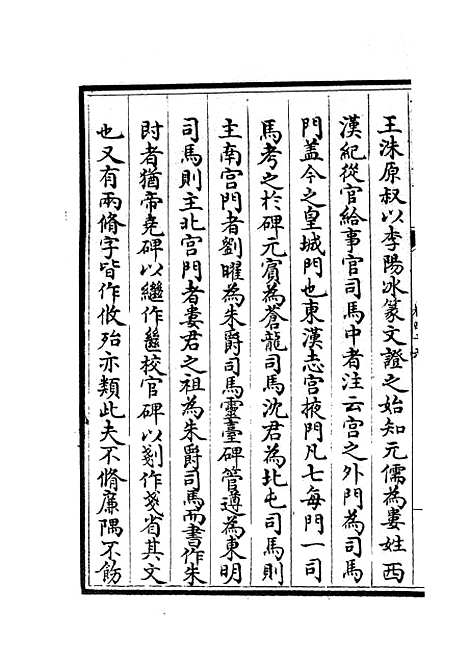 王洙原叔以李陽冰篆文證之始知元儒為婁姓西
漢紀從官給事官司馬中者注云宫之外門為司馬
門盖今之皇城門也東漢志宫掖門凡七每門一司
馬考之於碑元賓為蒼龍司馬沈君為北屯司馬則
主南宫門者劉曜為朱爵司馬靈臺碑管遵為東明
司馬則主北宫門者婁君之祖為朱爵司馬而書作朱
䏙者猶帝堯碑以繼作㡭校官碑以剗作戔省其文
也又有兩脩字皆作攸殆亦類此夫不脩廉隅不飭